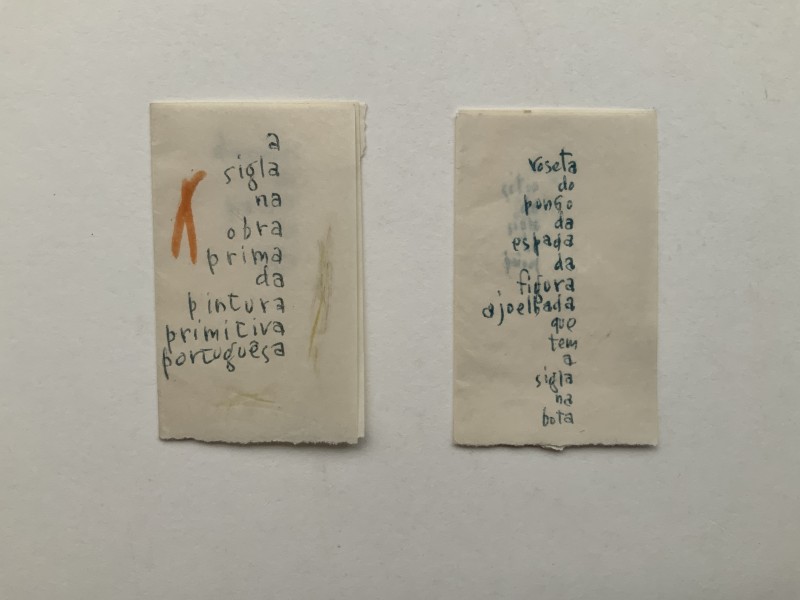 a
sigla
na
obra
prima
da
pintura
primitiva
portuguêsa
roseta
do
ponho
da
espada
da
figura
ajoelhada
que
tem
a
sigla
na
bota